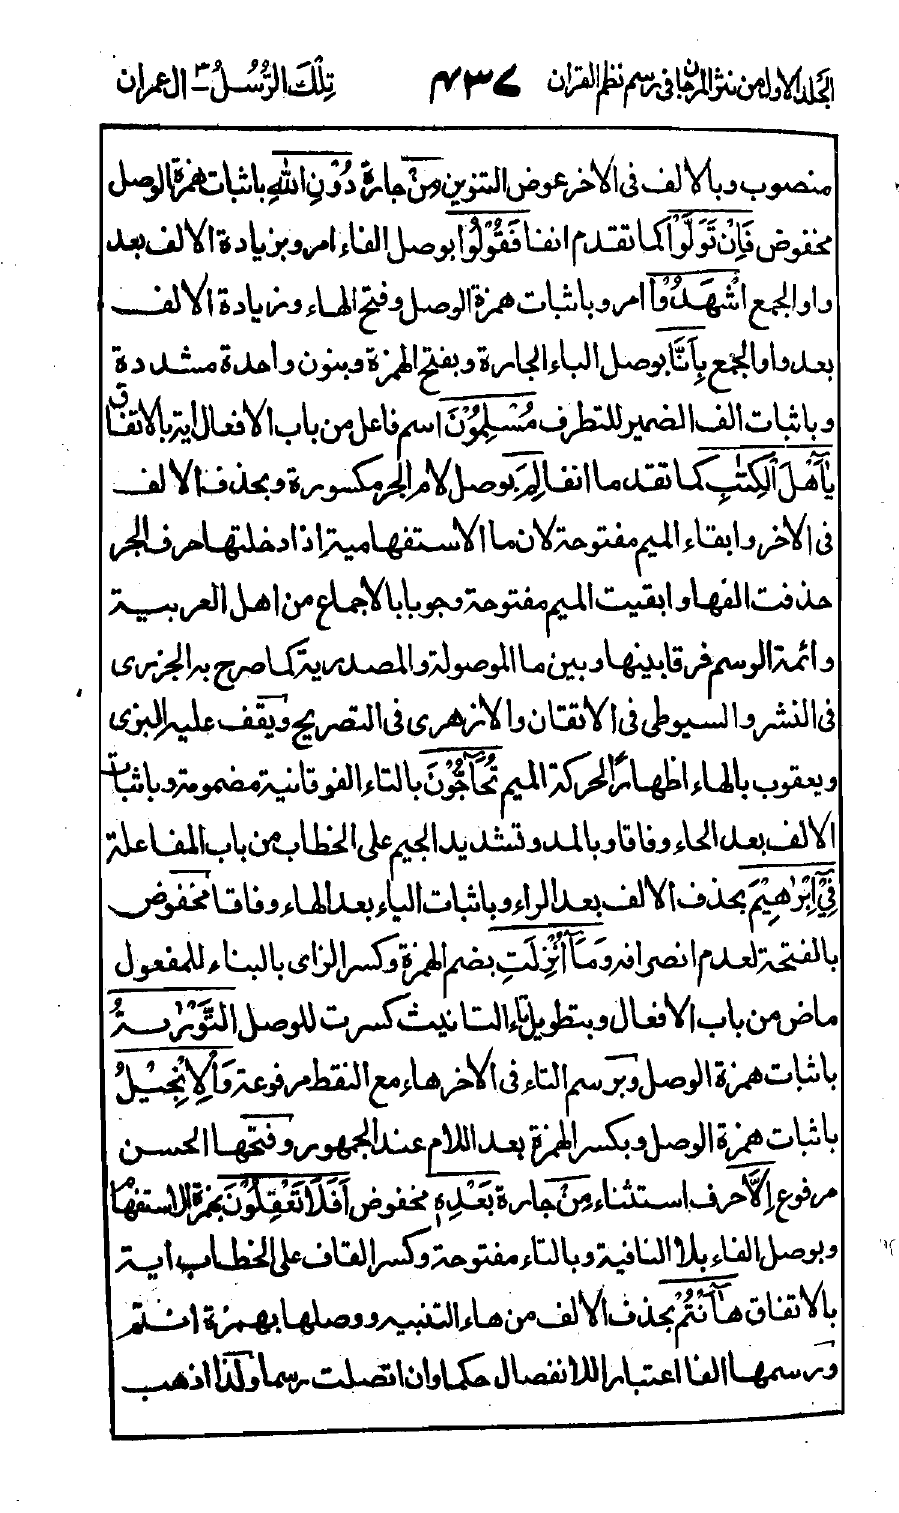 الجلد الاول من نثر المرجان فى رسم نظم القران ٤٣٧ تِلْكَ الرُّسُلُ ـ ٣ ال عمران
منصوب وبالالف فى الاخر عوض التنوين مِنْ جارة دُوْنِ اللهِ باثبات همزة الوصل
مخفوض فَاِنْ تَوَلَّوْا كما تقدم انفا فَقُوْلُوْا بوصل الفاء امر وبزيادة الالف بعد
واو الجمع اشْهَدُوْا امر وباثبات همزة الوصل وفتح الهاء وزيادة الالف
بعد واو الجمع بِاَنَّا بوصل الباء الجارة وبفتح الهمزة وبنون واحدة مشددة
وباثبات الف الضمير للتطرف مُسْلِمُوْنَ اسم فاعل من باب الافعال اية بالاتفاق
يٰٓاَهْلَ الْكِتٰبِ كما تقدم انفا لِمَ بوصل لام الجر مكسورة وبحذف الالف
فى الاخر وابقاء الميم مفتوحة لان ما الاستفهامية اذا دخلتها حرف الجر
حذفت الفها وابقيت الميم مفتوحة وجوبا بالاجماع من اهل العربية
وائمة الرسم فرقا بينها وبين ما الموصولة والمصدرية كما صرح به الجزرى
فى النشر والسيوطى فى الاتقان والازهرى فى التصريح ويقف عليه البزى
ويعقوب بالهاء اظهارًا لحركة الميم تُحَآجُّوْنَ بالتاء الفوقانية مضمومة وباثبات
الالف بعد الحاء وفاقا وبالمد وتشديد الجيم على الخطاب من باب المفاعلة
فِيْٓ اِبْرٰهِيْمَ بحذف الالف بعد الراء وباثبات الياء بعد الهاء وفاقا مخفوض
بالفتحة لعدم انصرافه وَمَآ اُنْزِلَتِ بضم الهمزة وكسر الزاى بالبناء للمفعول
ماض من باب الافعال وبتطويل تاء التانيث كسرت للوصل التَّوْرٰىةُ
باثبات همزة الوصل وبرسم التاء فى الاخر هاء مع النقط مرفوعة وَالْاِنْجِيْلُ
باثبات همزة الوصل وبكسر الهمزة بعد اللام عند الجمهور وفتحها الحسن
مرفوع اِلَّا حرف استثناء مِنْ جارة بَعْدِهٖ مخفوض اَفَلَا تَعْقِلُوْنَ بهمزة الاستفهام
وبوصل الفاء بلا النافية وبالتاء مفتوحة وكسر القاف على الخطاب اية
بالاتفاق هٰٓاَنْتُمْ بحذف الالف من هاء التنبيه ووصلها بهمزة انتم
ورسمها الفا اعتبارا للانفصال حكما وان اتصلت رسما ولذا اذهب